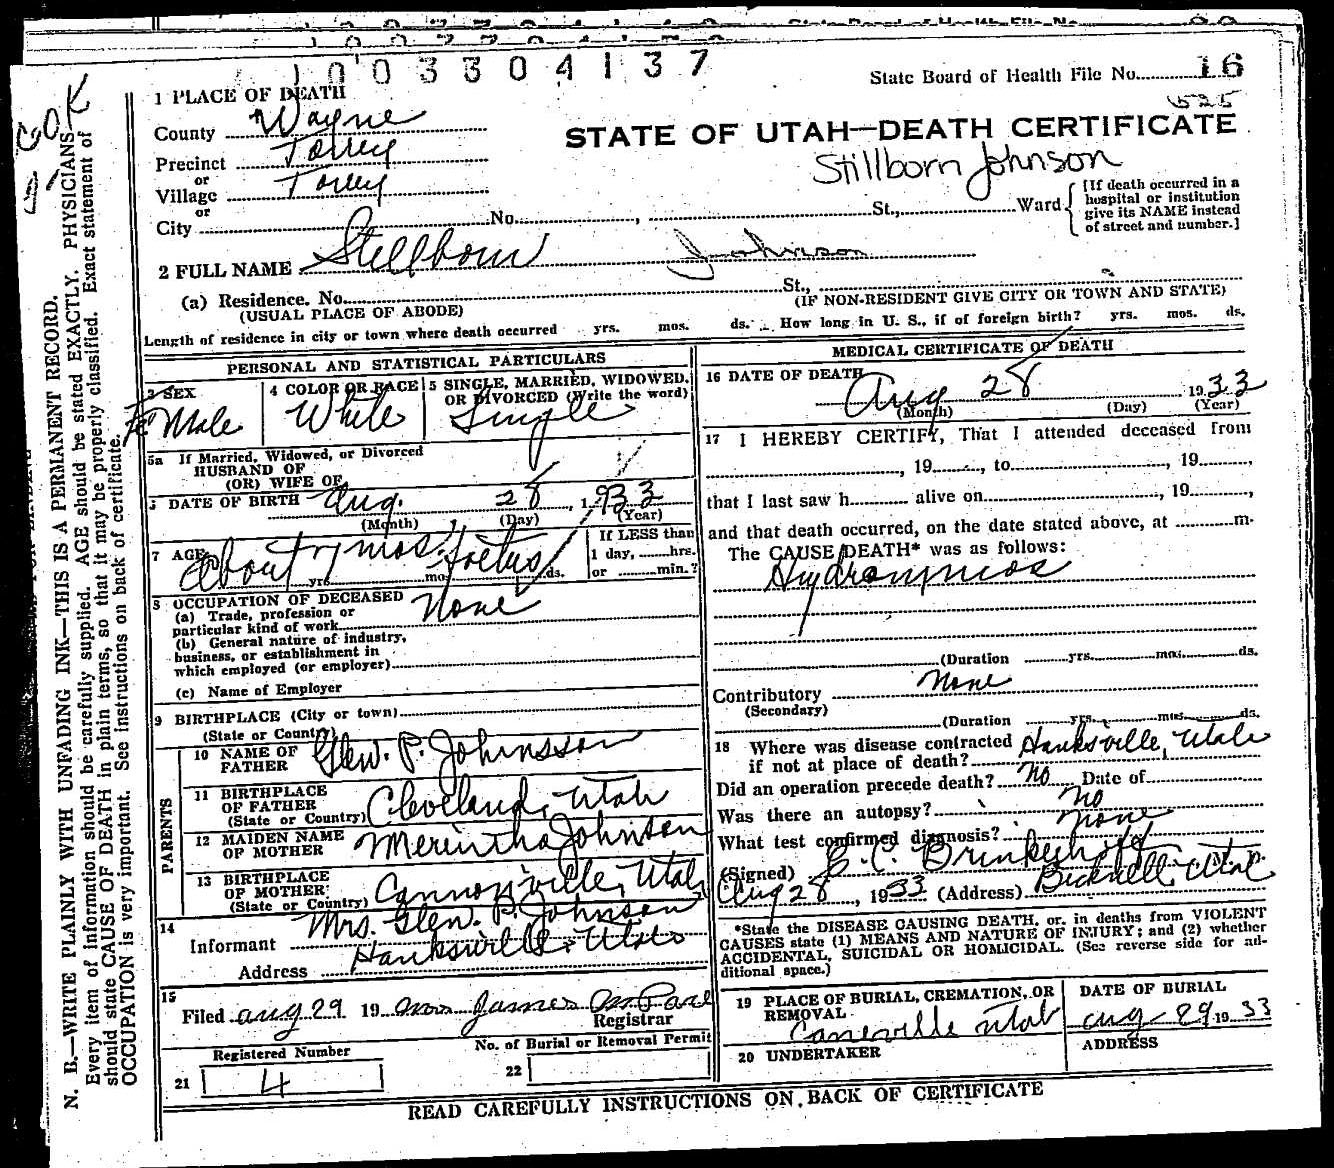 1003304137
State Board of Health File No. 16
525
STATE OF UTAH—DEATH CERTIFICATE
Stillborn Johnson
1 PLACE OF DEATH
County Wayne
Precinct Torrey
or
Village Torrey
or
City No. , St., Ward
[If death occurred in a
hospital or institution
give its NAME instead
of street and number.]
2 FULL NAME Stillborn Johnson
(a) Residence. No. St.,
(USUAL PLACE OF ABODE) (IF NON-RESIDENT GIVE CITY OR TOWN AND STATE)
Length of residence in city or town where death occurred yrs. mos. ds. How long in U. S., if of foreign birth? yrs. mos. ds.
PERSONAL AND STATISTICAL PARTICULARS
3 SEX
Fe Male
4 COLOR OR RACE
White
5 SINGLE, MARRIED, WIDOWED,
OR DIVORCED (Write the word)
Single
5a If Married, Widowed, or Divorced
HUSBAND OF
(OR) WIFE OF
DATE OF BIRTH Aug. 28, 1933
(Month) (Day) (Year)
7 AGE About 7 mos. foetus
yrs. mo ds.
If LESS than
1 day, hrs.
or min.?
8 OCCUPATION OF DECEASED
(a) Trade, profession or
particular kind of work None
(b) General nature of industry,
business, or establishment in
which employed (or employer)
(c) Name of Employer
9 BIRTHPLACE (City or town)
(State or Country)
PARENTS
10 NAME OF
FATHER Glen. P. Johnson
11 BIRTHPLACE
OF FATHER
(State or Country) Cleveland, Utah
12 MAIDEN NAME
OF MOTHER Merintha Johnson
13 BIRTHPLACE
OF MOTHER
(State or Country) Cannonville, Utah
14
Informant Mrs. Glen. P. Johnson
Address Hanksville, Utah
15
Filed Aug 29 19 Mrs James M Pace
Registrar
Registered Number
21 4
No. of Burial or Removal Permit
22
MEDICAL CERTIFICATE OF DEATH
16 DATE OF DEATH
Aug 28 1933
(Month) (Day) (Year)
17 I HEREBY CERTIFY, That I attended deceased from
, 19 , to , 19 ,
that I last saw h alive on , 19 ,
and that death occurred, on the date stated above, at m.
The CAUSE DEATH* was as follows:
(Duration yrs. mos. ds.
Contributory None
(Secondary)
(Duration yrs. mos. ds.
18 Where was disease contracted Hanksville, Utah
if not at place of death?
Did an operation precede death? No Date of
Was there an autopsy? No
What test confirmed diagnosis? None
(Signed) B. C.
Aug 28, 1933 (Address) Bicknell, Utah
*State the DISEASE CAUSING DEATH, or, in deaths from VIOLENT
CAUSES state (1) MEANS AND NATURE OF INJURY; and (2) whether
ACCIDENTAL, SUICIDAL OR HOMICIDAL. (See reverse side for ad-
ditional space.)
19 PLACE OF BURIAL, CREMATION, OR
REMOVAL
Caneville Utah
DATE OF BURIAL
Aug 29 1933
20 UNDERTAKER
ADDRESS
READ CAREFULLY INSTRUCTIONS ON BACK OF CERTIFICATE
N. B.—WRITE PLAINLY WITH UNFADING INK—THIS IS A PERMANENT RECORD.
Every item of information should be carefully supplied. AGE should be stated EXACTLY. PHYSICIANS
should state CAUSE OF DEATH in plain terms, so that it may be properly classified. Exact statement of
OCCUPATION is very important. See instructions on back of certificate.